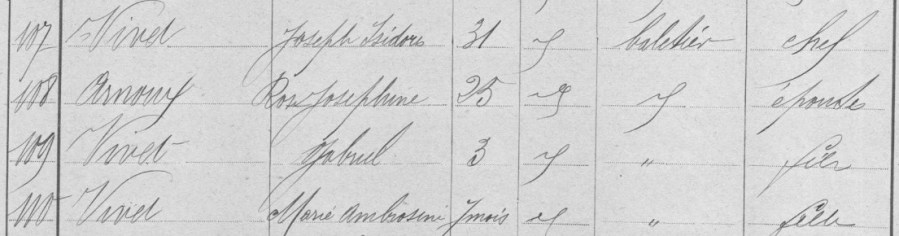 107 Vivet Joseph Isidore 31 " baletier chef
108 Arnoux Rose Josephine 25 " " épouse
109 Vivet Gabriel 3 " " fils
110 Vivet Marie Ambrosine 7 mois " " fille